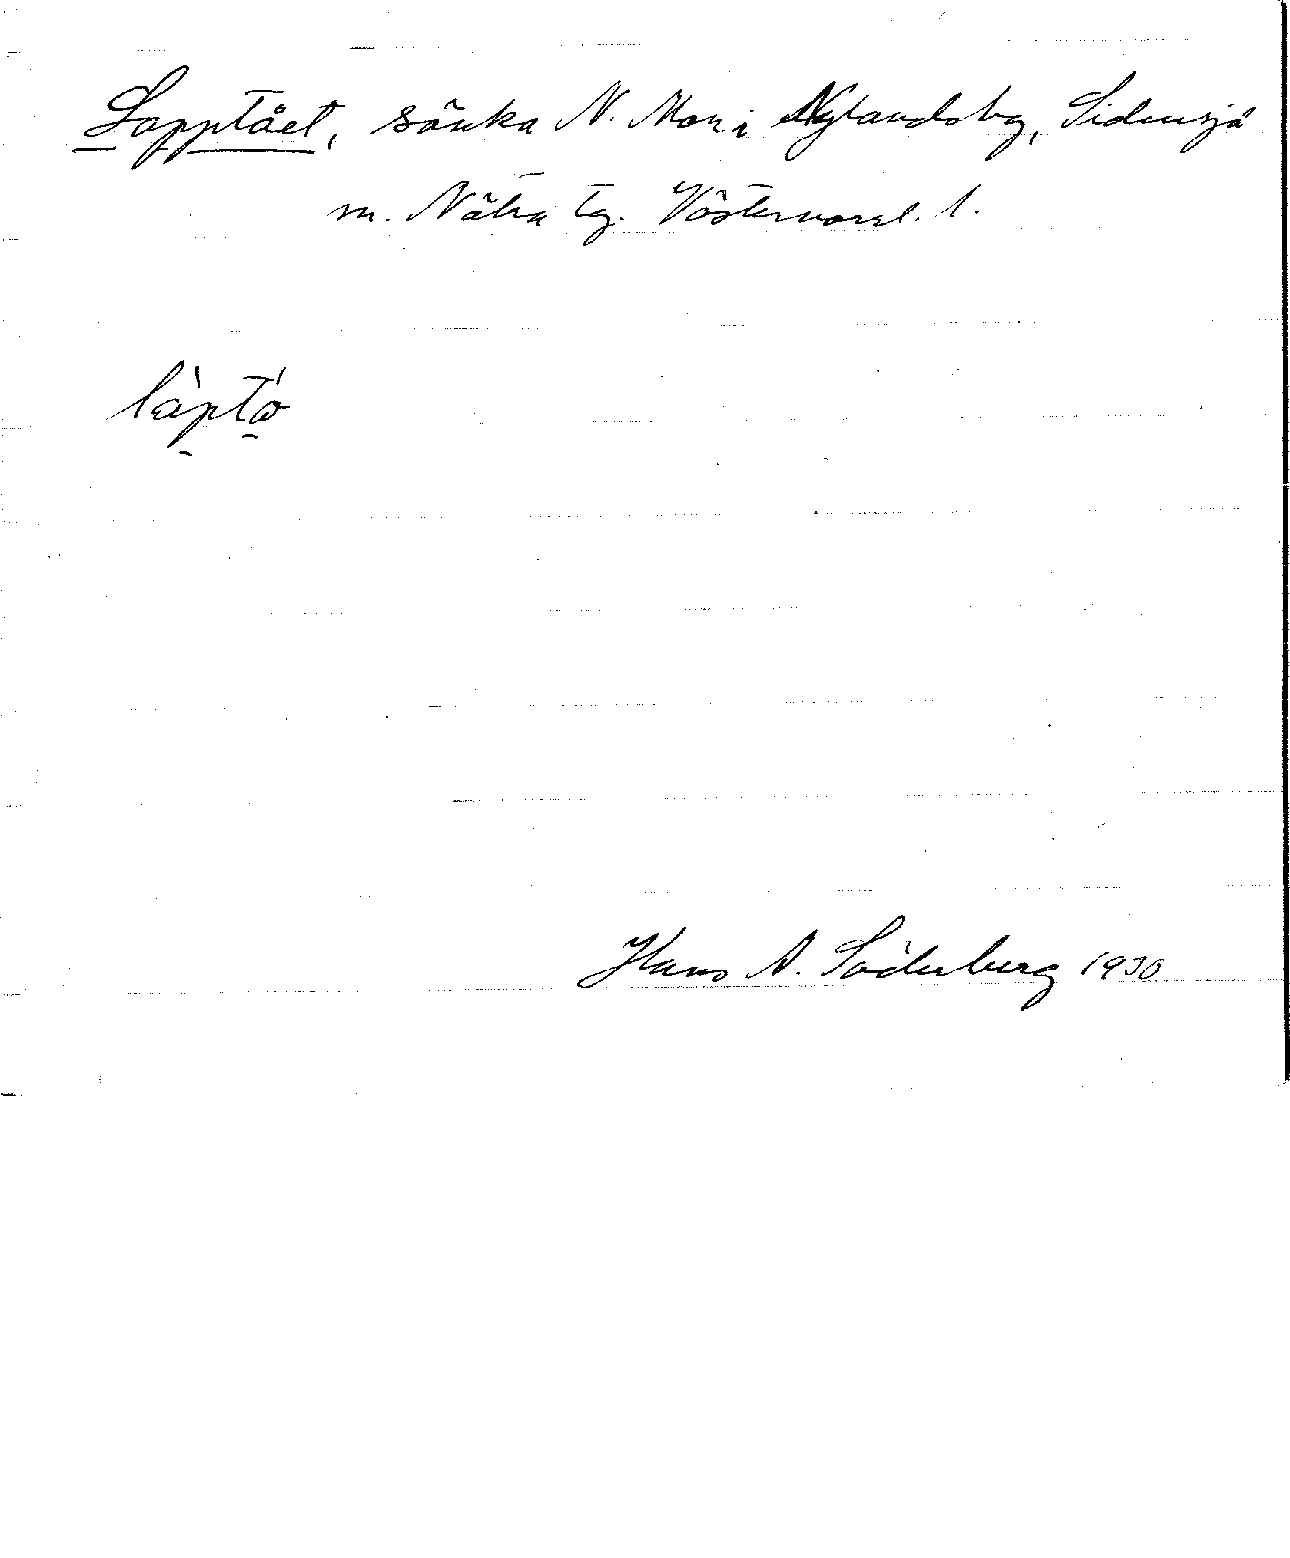 Lapptået, sänka N. Mon i Nylandsby, Sidensjö
m. Nätra tg. Västernorrl. l.
làptó
Hans A. Söderberg 1930